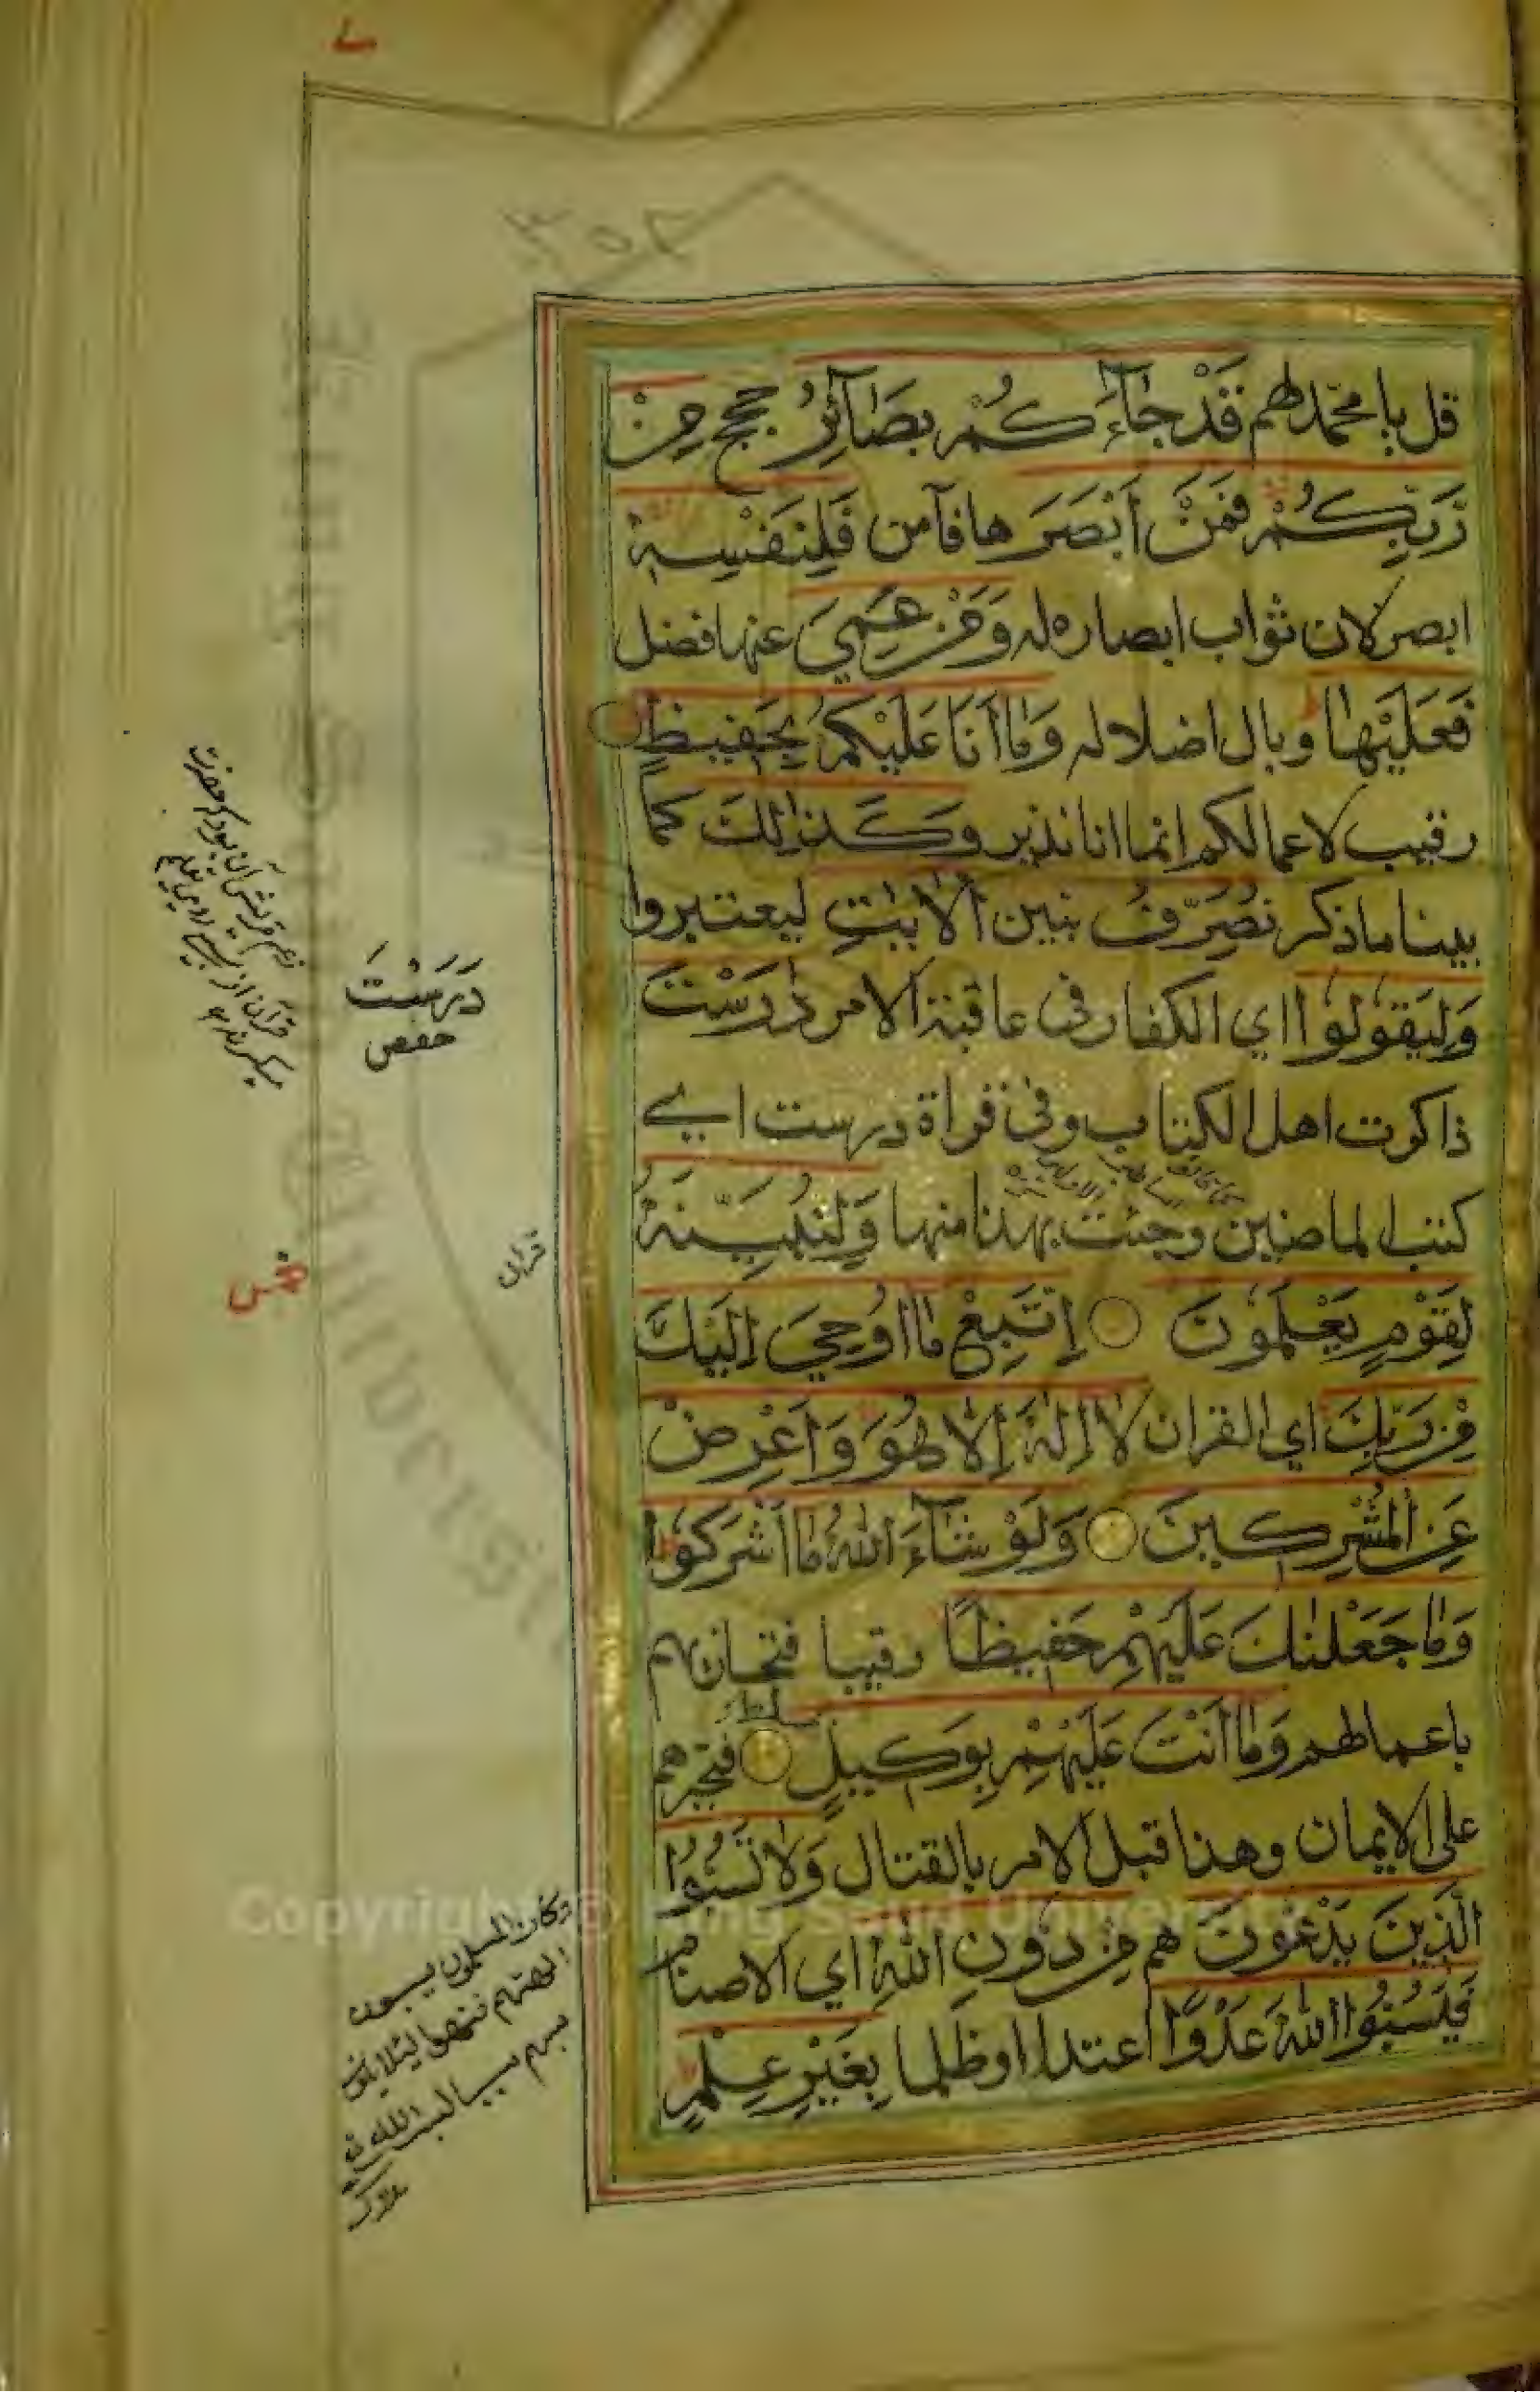 قل يا محمد لهم قَدْ جَآءَكُمْ بَصَآئِرُ حجج مِنْ
رَّبِّكُمْ فَمَنْ أَبْصَرَ ها فآمن فَلِنَفْسِهِ
ابصر لان ثواب ابصاره له وَمَنْ عَمِيَ عنها فضل
فَعَلَيْهَا وبال اضلاله وَمَا أَنَا عَلَيْكُمْ بِحَفِيظٍ
رقيب لاعمالكم انما انا نذير وَكَذٰلِكَ كما
بينا ماذكر نُصَرِّفُ نبين الْاٰيٰتِ ليعتبروا
وَلِيَقُولُوا اي الكفار في عاقبة الامر دٰرَسْتَ
ذاكرت اهل الكتاب وفي قراة درست اي
كتب الماضين وجئت بهذا منها وَلِنُبَيِّنَهُ
لِقَوْمٍ يَعْلَمُونَ اِتَّبِعْ مَا اُوحِيَ اِلَيْكَ
مِنْ رَبِّكَ اي القران لَا اِلٰهَ اِلَّا هُوَ وَاَعْرِضْ
عَنِ الْمُشْرِكِينَ وَلَوْ شَآءَ اللهُ مَا أَشْرَكُوا
وَمَا جَعَلْنٰكَ عَلَيْهِمْ حَفِيظًا رقيبا فتجازيهم
باعمالهم وَمَا اَنْتَ عَلَيْهِمْ بِوَكِيلٍ فتجبرهم
على الايمان وهذا قبل الامر بالقتال وَلَا تَسُبُّوا
الَّذِينَ يَدْعُونَ هم مِنْ دُونِ اللهِ اي الاصنام
فَيَسُبُّوا اللهَ عَدْوًا اعتداا وظلما بِغَيْرِ عِلْمٍ
دَرَسْتَ
حفص
قرآن
خمس
وكان المسلمون يسبون
الهتهم فنهوا لئلا يكون
سبهم سببا لسب الله
مدارك
Copyright © King Saud University